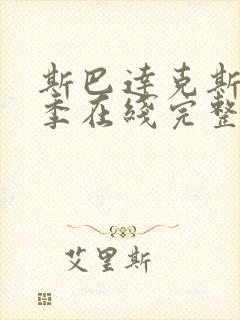 斯巴達克斯
季在綫完整
艾里斯